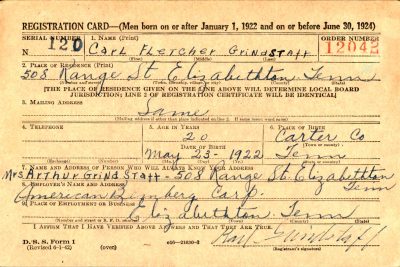 REGISTRATION CARD—(Men born on or after January 1, 1922 and on or before June 30, 1924)
SERIAL NUMBER 1. NAME (Print) ORDER NUMBER
N 120 CARL FLETCHER GRINDSTAFF 12042
(First) (Middle) (Last)
2. PLACE OF RESIDENCE (Print)
508 Range St. Elizabethton Tenn
[THE PLACE OF RESIDENCE GIVEN ON THE LINE ABOVE WILL DETERMINE LOCAL BOARD
JURISDICTION; LINE 2 OF REGISTRATION CERTIFICATE WILL BE IDENTICAL]
3. MAILING ADDRESS
Same
(Mailing address if other than place indicated on line 2. If same insert word same)
4. TELEPHONE 5. AGE IN YEARS 6. PLACE OF BIRTH
20 Carter Co
DATE OF BIRTH (Town or county)
May 23 - 1922 Tenn
(Exchange) (Number) (Mo.) (Day) (Yr.) (State or country)
7. NAME AND ADDRESS OF PERSON WHO WILL ALWAYS KNOW YOUR ADDRESS
Mrs ARTHUR GRINDSTAFF - 508 Range St. Elizabethton
Tenn
8. EMPLOYER'S NAME AND ADDRESS
American Bemberg Corp.
9. PLACE OF EMPLOYMENT OR BUSINESS
Elizabethton Tenn
(Number and street or R. F. D. number) (Town) (County) (State)
I AFFIRM THAT I HAVE VERIFIED ABOVE ANSWERS AND THAT THEY ARE TRUE.
D. S. S. Form 1 (over) Grindstaff
(Revised 6-1-42) (Registrant's signature)